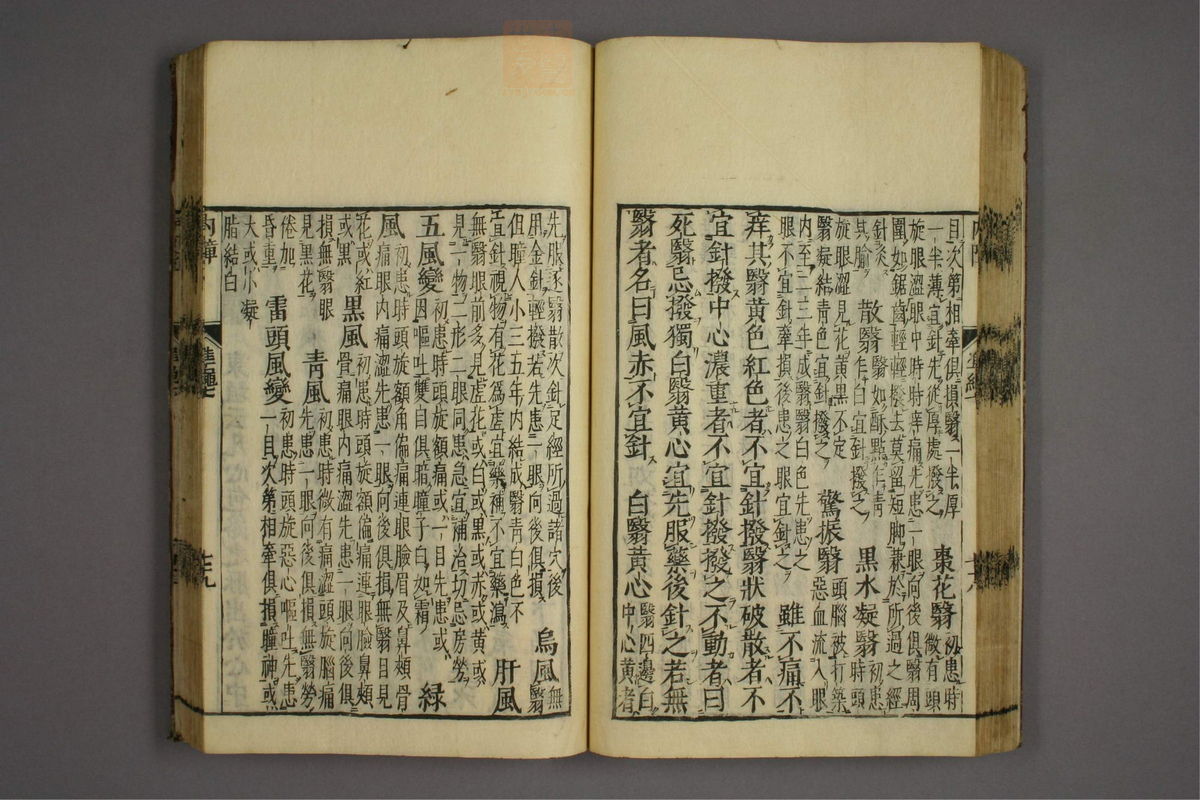 目次第相牽俱損翳一半厚
一半薄宜針先從厚處撥之
棗花翳
初患時
微有頭
旋眼澀眼中時時痒痛先患一眼向後俱翳周
圍如鋸齒輕輕撥去莫留短脚兼於所過之經
針灸
其腧
散翳
翳如酥點乍青
乍白宜針撥之
黒水凝翳
初患
時頭
旋眼澀見花黄黒不定
翳凝結青色宜針撥之
驚振翳
頭腦被打築
惡血流入眼
内至二三年成翳翳白色先患之
眼不宜針牽損後患之眼宜針之
雖不痛不
痒其翳黄色紅色者不宜針撥翳狀破散者不
宜針撥中心濃重者不宜針撥撥之不動者曰
死翳忌撥獨白翳黄心宜先服藥後針之若無
翳者名曰風赤不宜針 白翳黄心
翳四邊白
中心黄者
先服逐翳散次針足經所過諸穴後
用金針輕撥若先患一眼向後俱損
烏風
無
翳
但瞳人小三五年内結成翳青白色不
宜針視物有花爲虚宜藥補不宜藥瀉
肝風
無翳眼前多見虚花或白或黒或赤或黄或
見一物二形二眼同患急宜補治切忌房勞
五風變
初患時頭旋額痛或一目先患或
因嘔吐雙目俱暗瞳子白如霜
緑
風
初患時頭旋額角偏痛連眼臉眉及鼻頰骨
痛眼内痛澀先患一眼向後俱損無翳目見
花或紅
或黒
黒風
初患時頭旋額偏痛連眼臉鼻頰
骨痛眼内痛澀先患一眼向後俱
損無翳眼
見黒花
青風
初患時微有痛澀頭旋腦痛
先患一眼向後俱損無翳勞
倦加
昏重
雷頭風變
初患時頭旋惡心嘔吐先患
一目次第相牽俱損瞳神或
大或小凝
脂結白
内障